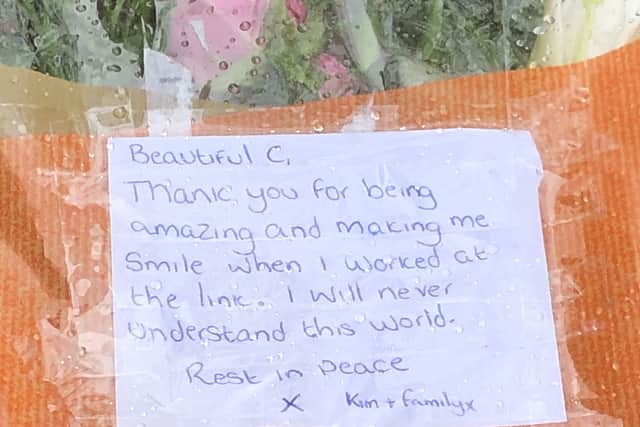 Beautiful C,
Thank you for being
amazing and making me
smile when I worked at
the link. I will never
understand this world.
Rest in peace
x Kim + family x